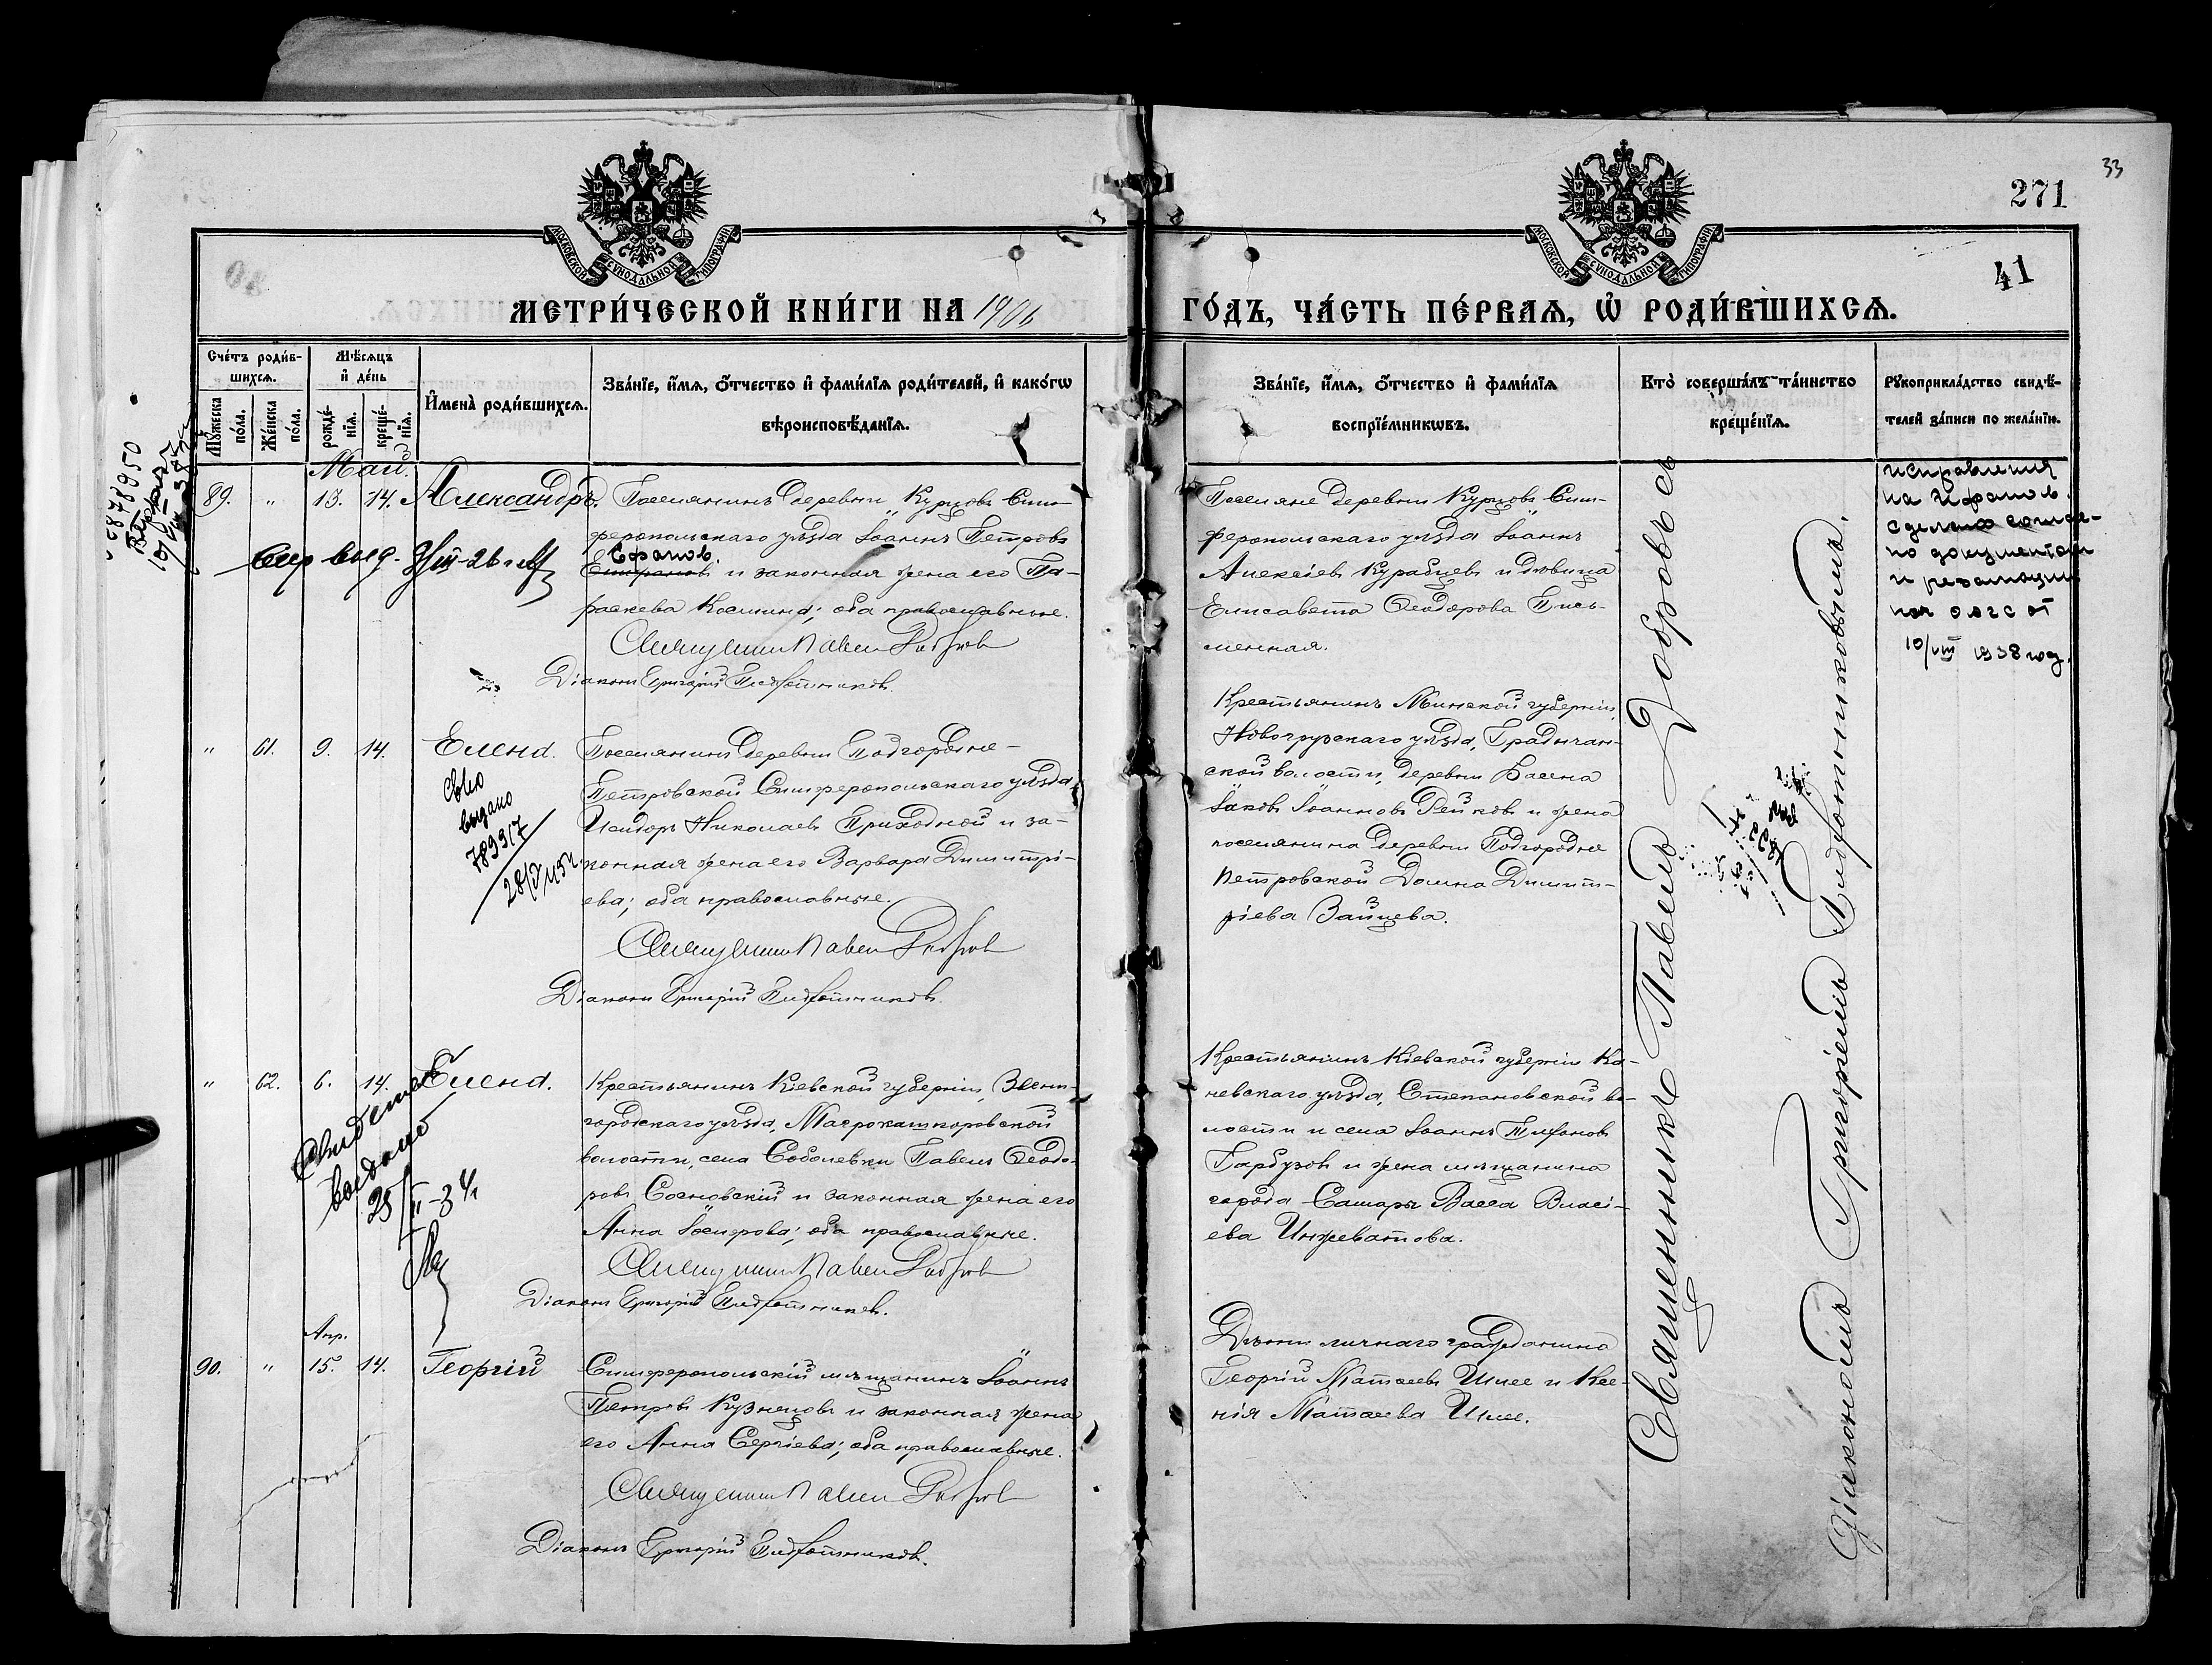 33
271
41
МОСКОВСКОЙ СУНОДАЛЬНОЙ ТИПОГРАФІИ
МОСКОВСКОЙ СУНОДАЛЬНОЙ ТИПОГРАФІИ
МЕТРИ́ЧЕСКОЙ КНИ́ГИ НА 1906
ГО́ДЪ, ЧА́СТЬ ПЕ́РВАѦ, Ѡ҆ РОДИ́ВШИХСѦ.
Сче́тъ роди́в-
шихсѧ.
Мꙋ́жеска по́ла.
Же́нска по́ла.
Мѣ́сѧцъ
и҆ де́нь
рожде́-нїѧ.
креще́-нїѧ.
И҆мена̀ роди́вшихсѧ.
Зва́нїе, и҆́мѧ, ѻ҆́тчество и҆ фами́лїѧ роди́телей, и҆ како́гѡ
вѣроисповѣ́данїѧ.
Зва́нїе, и҆́мѧ, ѻ҆́тчество и҆ фами́лїѧ
воспрїе́мникѡвъ.
Кто̀ соверша́лъ та́инство
креще́нїѧ.
Рꙋкоприкла́дство свидѣ́-
телей за́писи по жела́нїю.
Май.
89. " 13. 14. Александръ.
Поселянинъ деревни Курцовъ Сим-
феропольскаго уѣзда Іоаннъ Петровъ
Софанов
и законная жена его Па-
раскева Космина; оба православные.
Священникъ Павелъ Добровъ
Діаконъ Григорій
Поселяне деревни Курцовъ Сим-
феропольскаго уѣзда Іоаннъ
Алексіевъ Курабцевъ и дѣвица
Елисавета Ѳеодорова Пись-
менная.
исправления
на
сделано соглас-
но документам
и резолюции
от
10/VIII 1938 год.
" 61. 9. 14. Елена.
Поселянинъ деревни Подгородне-
Петровской Симферопольскаго уѣзда
Исидоръ Николаевъ Приходной и за-
конная жена его Варвара Димитрі-
ева; оба православные.
Священникъ Павелъ Добровъ
Діаконъ Григорій
Св-во
выдано
Крестьянинъ Минской губерніи,
Новогрузскаго уѣзда,
ской волости, деревни Басена
Іаковъ Іоанновъ Рейковъ и жена
поселянина деревни Подгородне
Петровской Домна Димит-
ріева Зайцева.
" 62. 6. 14. Елена.
Крестьянинъ Кіевской губерніи, Звени-
городскаго уѣзда,
волости, села Соболевки Павелъ Ѳеодо-
ровъ Сосновскій и законная жена его
Анна Іосифова; оба православные.
Священникъ Павелъ Добровъ
Діаконъ Григорій
выдано
Крестьянинъ Кіевской губерніи Ка-
невскаго уѣзда, Степановской во-
лости и села Іоаннъ
Гарбузовъ и жена мѣщанина
города Самары Васса Власі-
ева Инжеватова.
Апр.
90. " 15. 14. Георгій
Симферопольскій мѣщанинъ Іоаннъ
Петровъ Кузнецовъ и законная жена
его Анна Сергіева; оба православные.
Священникъ Павелъ Добровъ
Діаконъ Григорій
Дѣти личнаго гражданина
Георгій Матѳеевъ и Ксе-
нія Матѳеева
Священникъ Павелъ Добровъ съ
Діакономъ Григоріемъ